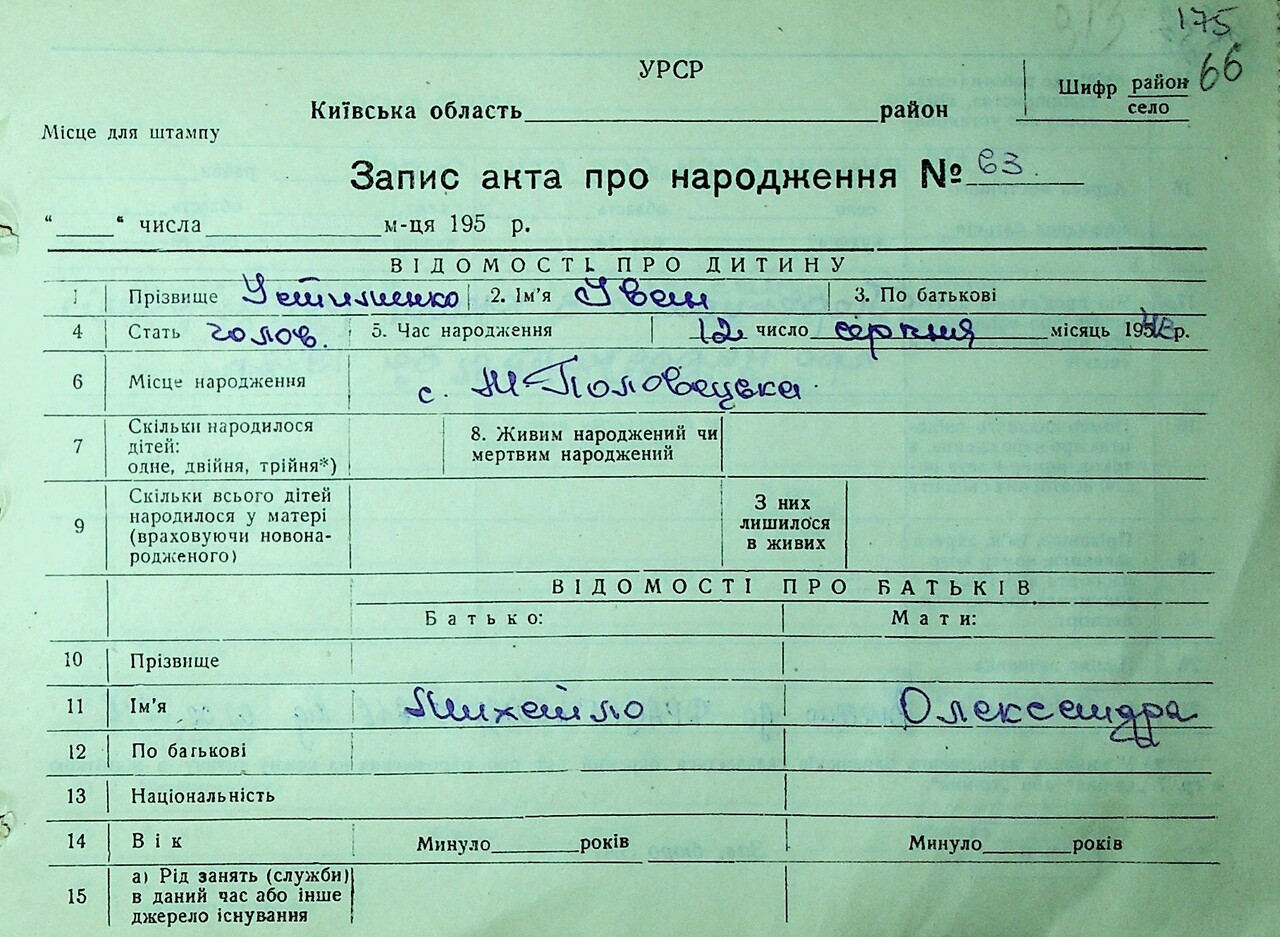 175
УРСР
66
Шифр район
село
Київська область район
Місце для штампу
Запис акта про народження № 63.
" " числа м-ця 195 р.
ВІДОМОСТІ ПРО ДИТИНУ
1 Прізвище Устименко 2. Ім'я Іван 3. По батькові
4 Стать чолов. 5. Час народження 12 число серпня місяць 195 р.
6 Місце народження с. М-Половецька
7 Скільки народилося
дітей:
одне, двійня, трійня*)
8. Живим народжений чи
мертвим народжений
9 Скільки всього дітей
народилося у матері
(враховуючи новона-
родженого)
З них
лишилося
в живих
ВІДОМОСТІ ПРО БАТЬКІВ
Батько: Мати:
10 Прізвище
11 Ім'я Михайло Олександра
12 По батькові
13 Національність
14 Вік Минуло років Минуло років
15 а) Рід занять (служби)
в даний час або інше
джерело існування